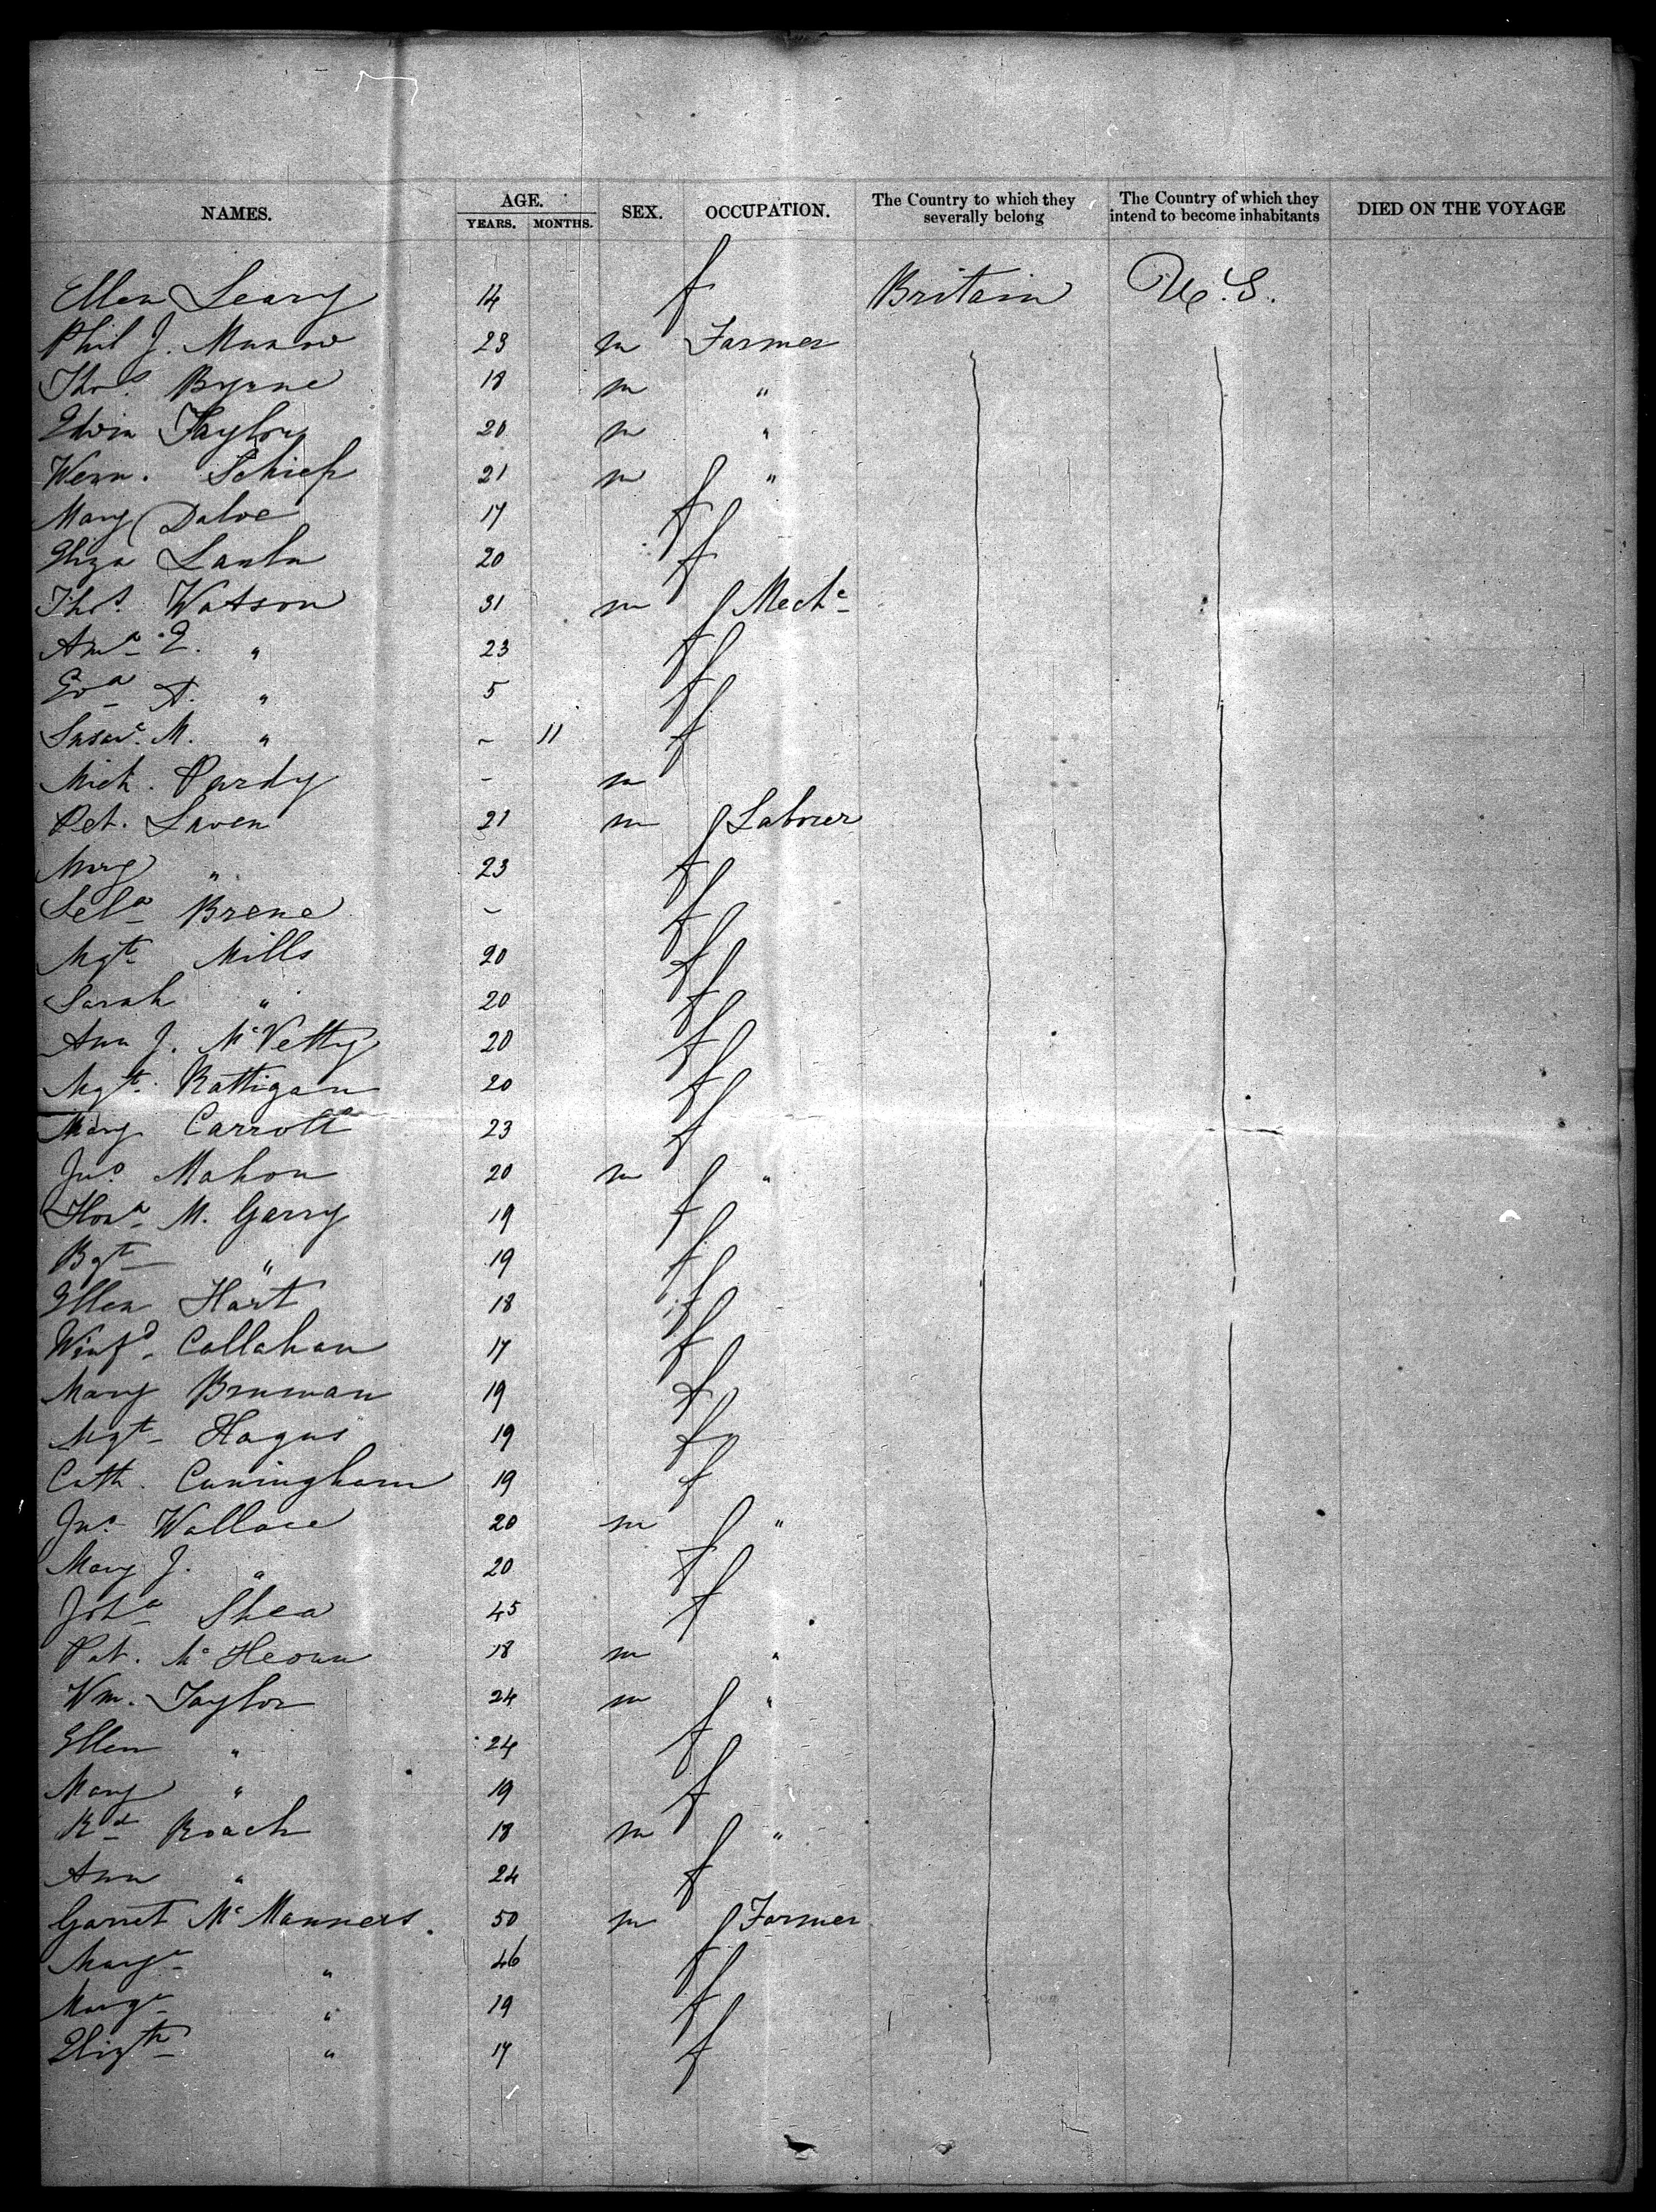 NAMES. AGE. YEARS. MONTHS. SEX. OCCUPATION. The Country to which they severally belong The Country of which they intend to become inhabitants DIED ON THE VOYAGE
Ellen Leary 14 f Britain U.S.
Phil J. 23 m Farmer
Thos. Byrne 18 m "
Edwin Taylor 20 m "
21 m "
Mary 17 f
Eliza 20 f
Thos. Watson 31 m Mechc
E. " 23 f
Eva A. " 5 f
M. " - 11 f
Mich. Purdy - m
Pet. Laven 21 m Labourer
" 23 f
Brene - f
Mgt. Mills 20 f
Sarah " 20 f
Ann J. McVetty 20 f
Mgt. Rattigan 20 f
Mary Carroll 23 f
Jno. Mahon 20 m "
Hona M. Garry 19 f
Bgt " 19 f
Ellen Hart 18 f
Winfd. Callahan 17 f
Mary 19 f
Mgt Hagus 19 f
Cath. Cuningham 19 f
Jno. Wallace 20 m "
Mary J. " 20 f
Joha Shea 45 f
Pat. 18 m "
Wm. Taylor 24 m "
Ellen " 24 f
Mary " 19 f
Rd Roach 18 m "
Ann " 24 f
Garret McManners. 50 m Farmer
" 46 f
" 19 f
Elizth " 17 f